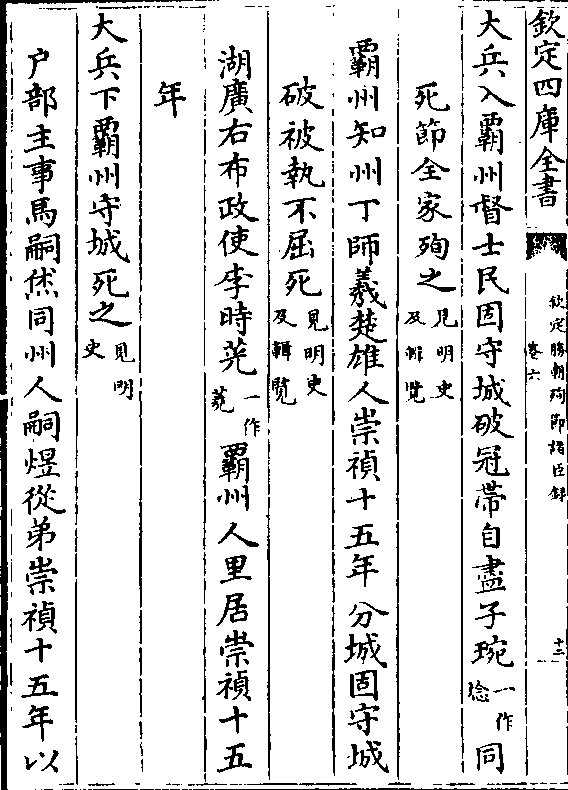 欽定四庫全書
欽定勝朝殉節諸臣録
卷六
十三
大兵入霸州督士民固守城破冠帶自盡子琬一作琀同
死節全家殉之見明史及輯覽
霸州知州丁師羲楚雄人崇禎十五年分城固守城
破被執不屈死見明史及輯覽
湖廣右布政使李時茺一作莞霸州人里居崇禎十五
年
大兵下霸州守城死之見明史
户部主事馬嗣烋同州人嗣煜從弟崇禎十五年以